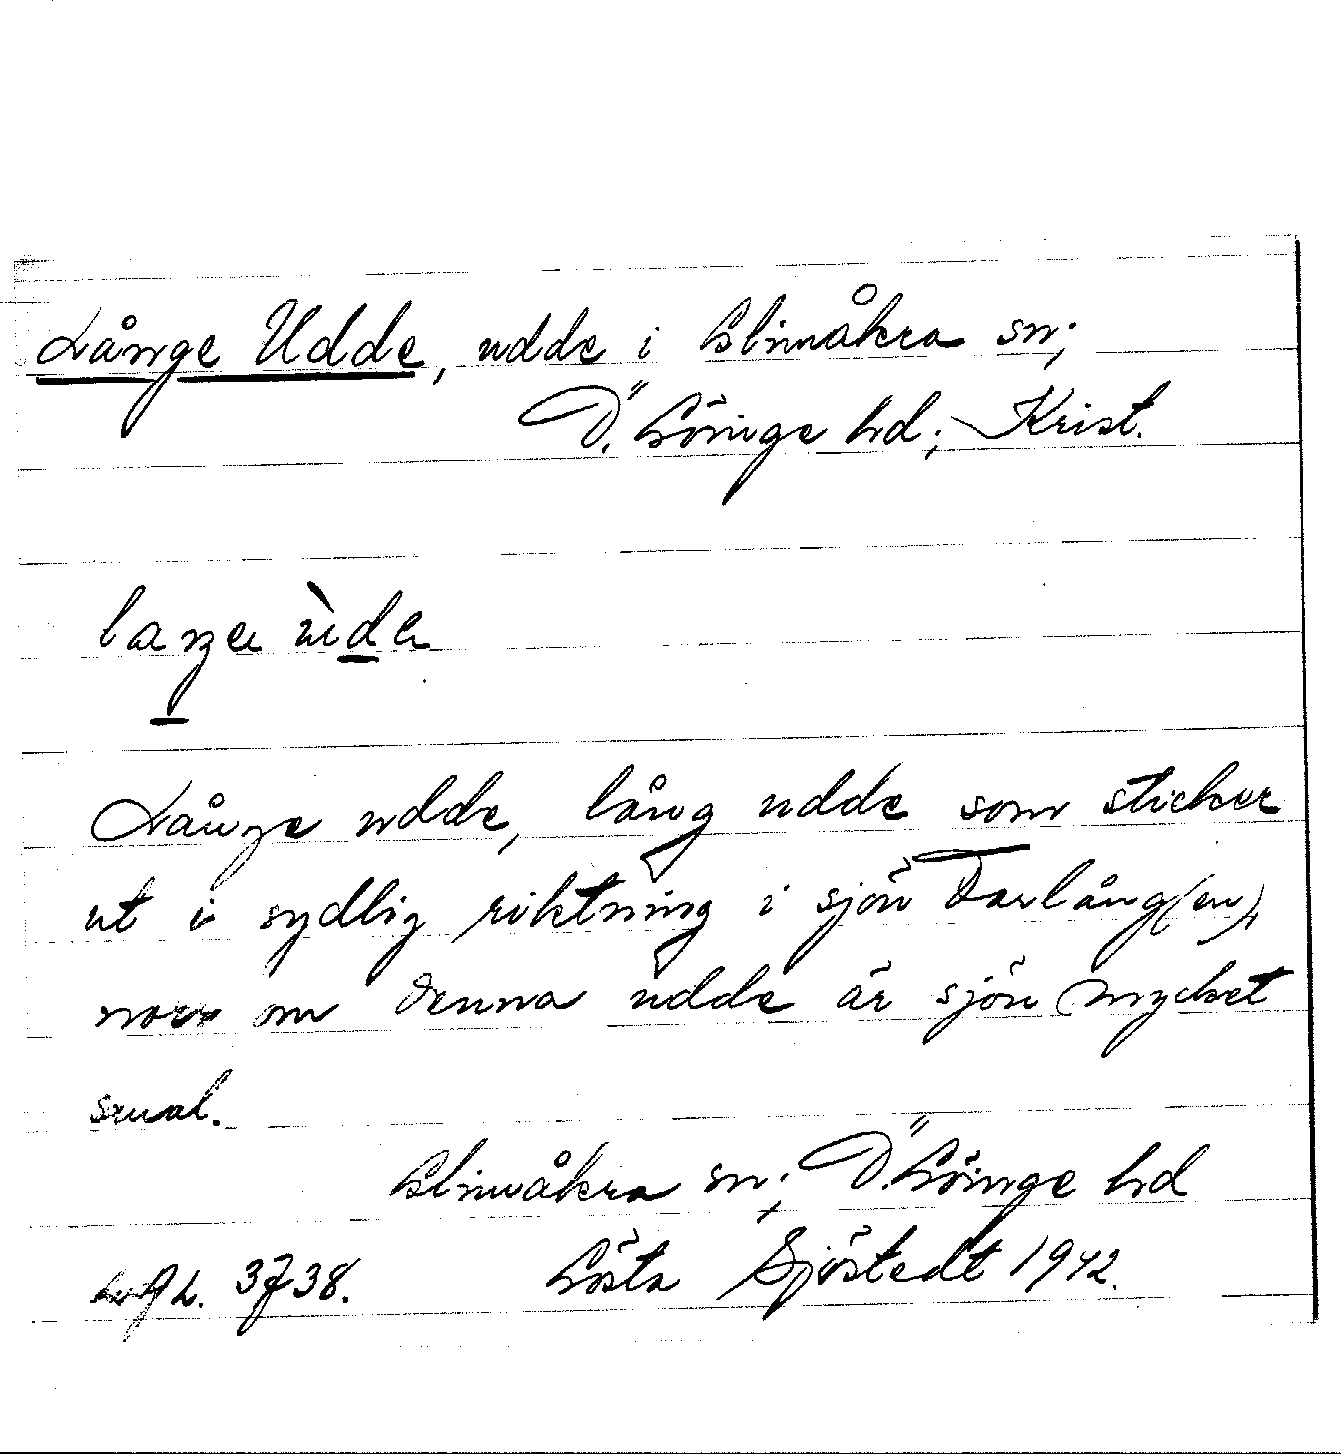 Långe Udde, udde i Glimåkra sn;
Ö. Göinge hd; Krist.
laŋe ùde
Långe udde, lång udde som sticker
ut i sydlig riktning i sjön Tarlång(en),
norr om denna udde är sjön mycket
smal.
Glimåkra sn; Ö. Göinge hd
3738. Gösta Sjöstedt 1942.